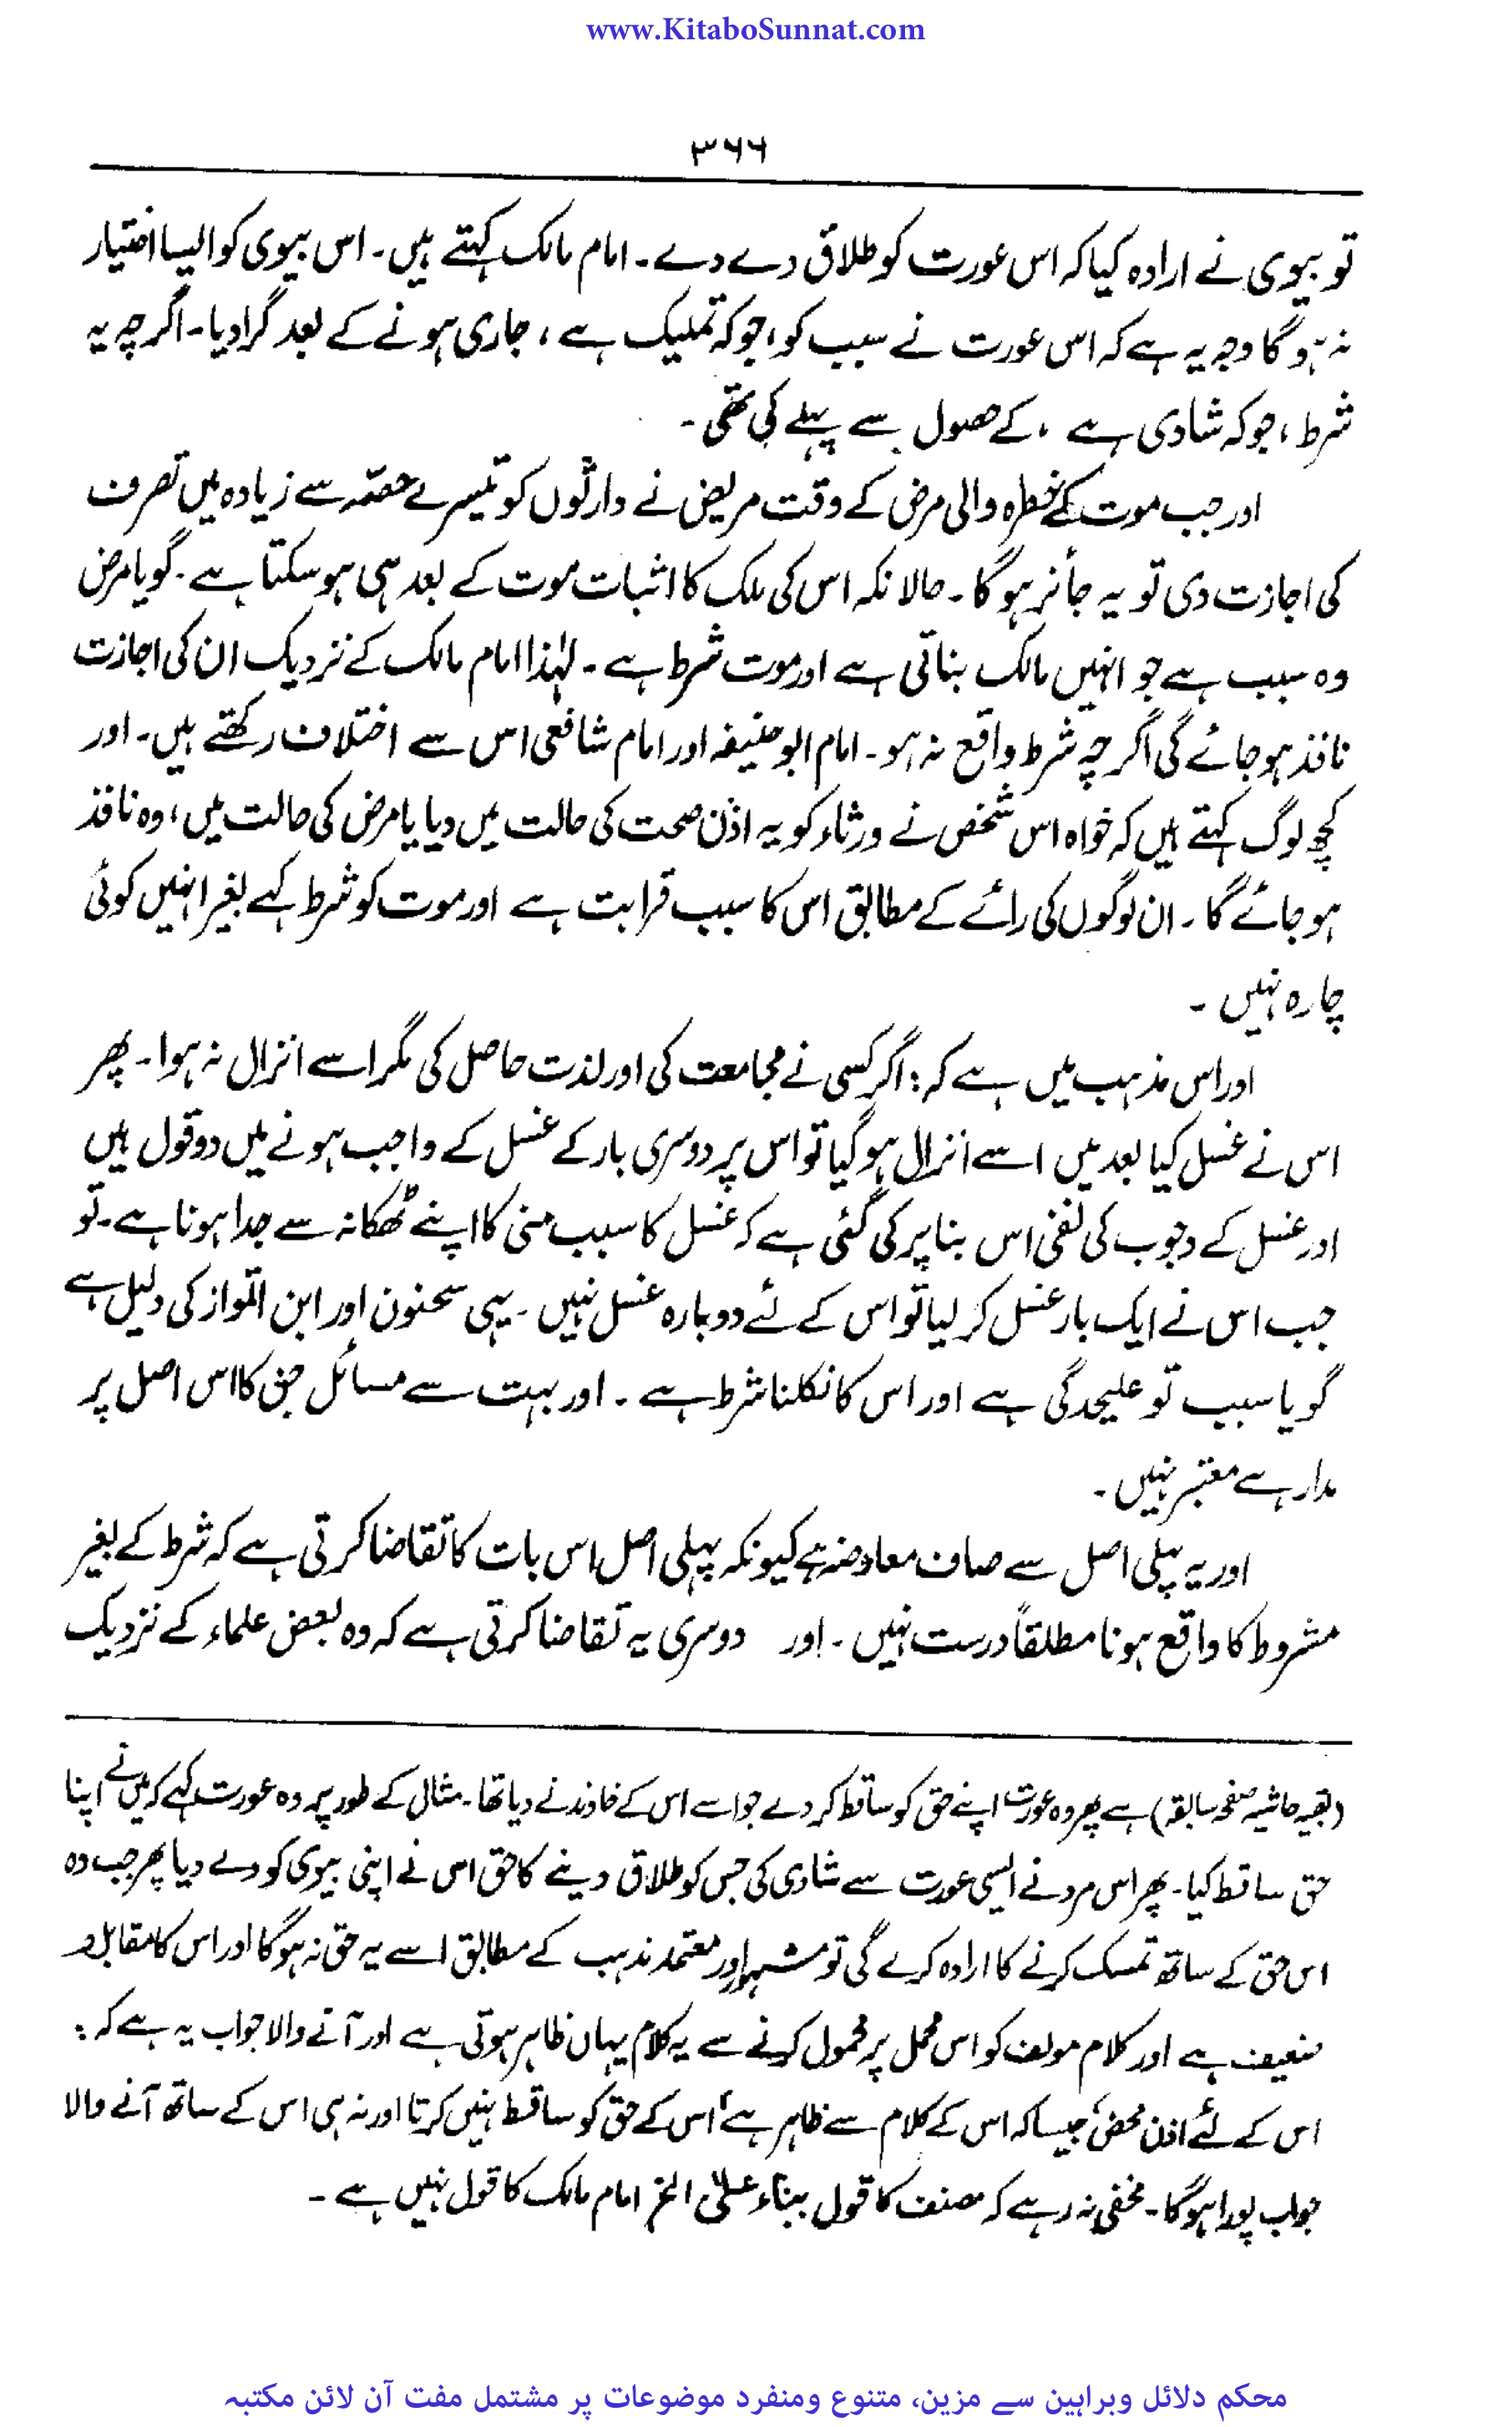 www.KitaboSunnat.com
۳۶۶
تو بیوی نے ارادہ کیا کہ اس عورت کو طلاق دے دے ۔ امام مالک کہتے ہیں ۔ اس بیوی کو ایسا اختیار
نہ ہو گا وجہ یہ ہے کہ اس عورت نے سبب کو ، جو کہ تملیک ہے ، جاری ہونے کے بعد گرا دیا ۔ اگرچہ یہ
شرط ، جو کہ شادی ہے ، کے حصول سے پہلے کی تھی ۔
اور جب موت کے خطرہ والی مرض کے وقت مریض نے وارثوں کو تیسرے حصّہ سے زیادہ میں تصرف
کی اجازت دی تو یہ جائز ہو گا ۔ حالانکہ اس کی ملک کا اثبات موت کے بعد ہی ہو سکتا ہے ۔ گویا مرض
وہ سبب ہے جو انہیں مالک بناتی ہے اور موت شرط ہے ۔ لہٰذا امام مالک کے نزدیک ان کی اجازت
نافذ ہو جائے گی اگرچہ شرط واقع نہ ہو ۔ امام ابو حنیفہ اور امام شافعی اس سے اختلاف رکھتے ہیں ۔ اور
کچھ لوگ کہتے ہیں کہ خواہ اس شخص نے ورثاء کو یہ اذن صحت کی حالت میں دیا یا مرض کی حالت میں ، وہ نافذ
ہو جائے گا ۔ ان لوگوں کی رائے کے مطابق اس کا سبب قرابت ہے اور موت کو شرط کہے بغیر انہیں کوئی
چارہ نہیں ۔
اور اس مذہب میں ہے کہ : اگر کسی نے مجامعت کی اور لذت حاصل کی مگر اسے انزال نہ ہوا ۔ پھر
اس نے غسل کیا بعد میں اسے انزال ہو گیا تو اس پر دوسری بار کے غسل کے واجب ہونے میں دو قول ہیں
اور غسل کے وجوب کی نفی اس بنا پر کی گئی ہے کہ غسل کا سبب منی کا اپنے ٹھکانہ سے جدا ہونا ہے ۔ تو
جب اس نے ایک بار غسل کر لیا تو اس کے لئے دوبارہ غسل نہیں ۔ یہی سحنون اور ابن المواز کی دلیل ہے
گویا سبب تو علیحدگی ہے اور اس کا نکلنا شرط ہے ۔ اور بہت سے مسائل جن کا اس اصل پر
مدار ہے معتبر نہیں ۔
اور یہ پہلی اصل سے صاف معاوضہ ہے کیونکہ پہلی اصل اس بات کا تقاضا کرتی ہے کہ شرط کے بغیر
مشروط کا واقع ہونا مطلقاً درست نہیں ۔ اور دوسری یہ تقاضا کرتی ہے کہ وہ بعض علماء کے نزدیک
(بقیہ حاشیہ صفحہ سابقہ) ہے پھر وہ عورت اپنے حق کو ساقط کر دے جو اسے اس کے خاوند نے دیا تھا ۔ مثال کے طور پر وہ عورت کہے کہ میں نے اپنا
حق ساقط کیا ۔ پھر اس مرد نے ایسی عورت سے شادی کی جس کو طلاق دینے کا حق اس نے اپنی بیوی کو دے دیا پھر جب وہ
اس حق کے ساتھ تمسک کرنے کا ارادہ کرے گی تو مشہور اور معتمد مذہب کے مطابق اسے یہ حق نہ ہو گا اور اس کا مقابل
ضعیف ہے اور کلام مولف کو اس محمل پر محمول کرنے سے یہ کلام یہاں ظاہر ہوتی ہے اور آنے والا جواب یہ ہے کہ :
اس کے لئے اذن محض ، جیسا کہ اس کے کلام سے ظاہر ہے ، اس کے حق کو ساقط نہیں کرتا اور نہ ہی اس کے ساتھ آنے والا
جواب پورا ہو گا ۔ مخفی نہ رہے کہ مصنف کا قول بناء علیٰ الخ امام مالک کا قول نہیں ہے ۔
محکم دلائل وبراہین سے مزین، متنوع ومنفرد موضوعات پر مشتمل مفت آن لائن مکتبہ